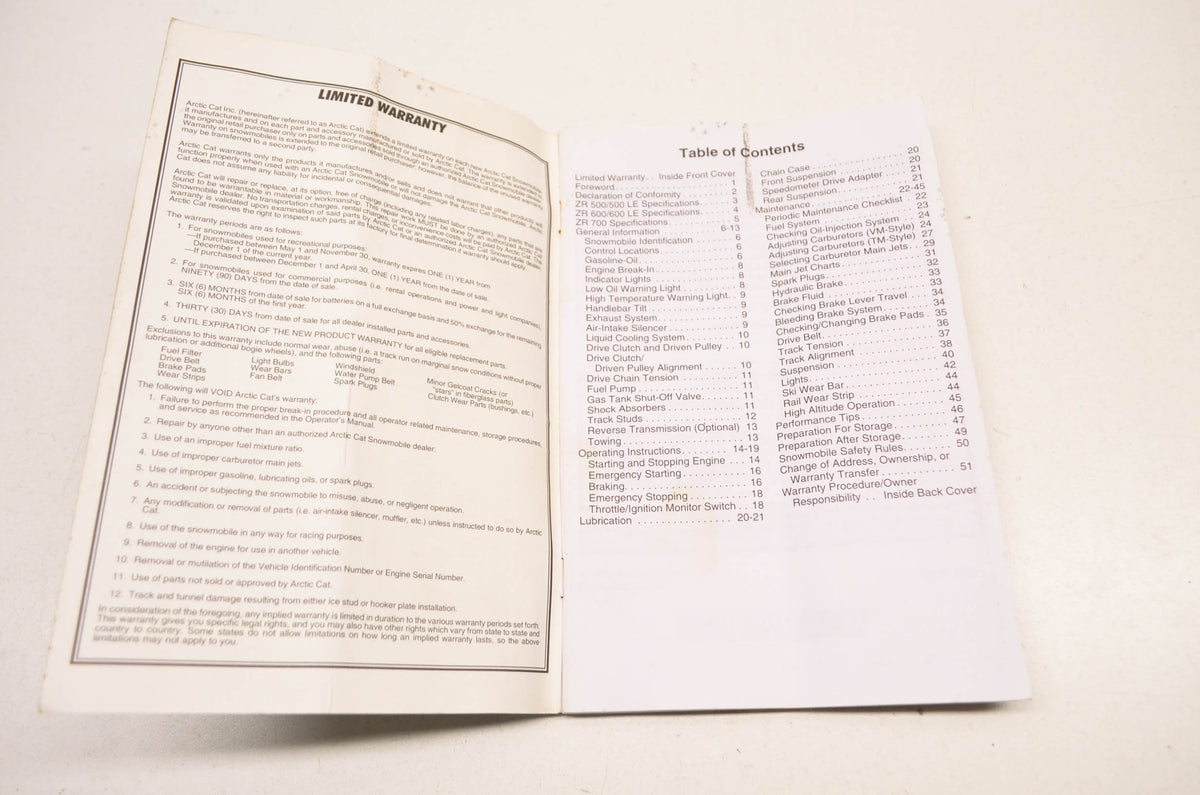 LIMITED WARRANTY
Arctic Cat Inc. (hereinafter referred to as Arctic Cat) extends a limited warranty on each new Arctic Cat Snowmobile
it manufactures and on each part and accessory manufactured or sold by Arctic Cat. This warranty is extended to
the original retail purchaser only on parts and accessories sold through an authorized Arctic Cat Snowmobile dealer.
Warranty on snowmobiles is extended to the original retail purchaser; however, the balance of the unused warranty
may be transferred to a second party.
Arctic Cat warrants only the products it manufactures and/or sells and does not warrant that other products will
function properly when used with an Arctic Cat Snowmobile or will not damage the Arctic Cat Snowmobile. Arctic
Cat does not assume any liability for incidental or consequential damages.
Arctic Cat will repair or replace, at its option, free of charge (including any related labor charges), any parts that are
found to be warrantable in material or workmanship. This repair work MUST be done by an authorized Arctic Cat
Snowmobile dealer. No transportation charges, rental charges, or inconvenience costs will be paid by Arctic Cat. The
warranty is validated upon examination of said parts by Arctic Cat or an authorized Arctic Cat Snowmobile dealer.
Arctic Cat reserves the right to inspect such parts at its factory for final determination if warranty should apply.
The warranty periods are as follows:
1. For snowmobiles used for recreational purposes:
—If purchased between May 1 and November 30, warranty expires ONE (1) YEAR from
December 1 of the current year.
—If purchased between December 1 and April 30, ONE (1) YEAR from the date of sale.
2. For snowmobiles used for commercial purposes (i.e. rental operations and power and light companies),
NINETY (90) DAYS from the date of sale.
3. SIX (6) MONTHS from date of sale for batteries on a full exchange basis and 50% exchange for the remaining
SIX (6) MONTHS of the first year.
4. THIRTY (30) DAYS from date of sale for all dealer installed parts and accessories.
5. UNTIL EXPIRATION OF THE NEW PRODUCT WARRANTY for all eligible replacement parts.
Exclusions to this warranty include normal wear, abuse (i.e. a track run on marginal snow conditions without proper
lubrication or additional bogie wheels), and the following parts:
Fuel Filter Light Bulbs Windshield Minor Gelcoat Cracks (or
Drive Belt Wear Bars Water Pump Belt "stars" in fiberglass parts)
Brake Pads Fan Belt Spark Plugs Clutch Wear Parts (bushings, etc.)
Wear Strips
The following will VOID Arctic Cat's warranty:
1. Failure to perform the proper break-in procedure and all operator related maintenance, storage procedures,
and service as recommended in the Operator's Manual.
2. Repair by anyone other than an authorized Arctic Cat Snowmobile dealer.
3. Use of an improper fuel mixture ratio.
4. Use of improper carburetor main jets.
5. Use of improper gasoline, lubricating oils, or spark plugs.
6. An accident or subjecting the snowmobile to misuse, abuse, or negligent operation.
7. Any modification or removal of parts (i.e. air-intake silencer, muffler, etc.) unless instructed to do so by Arctic
Cat.
8. Use of the snowmobile in any way for racing purposes.
9. Removal of the engine for use in another vehicle.
10. Removal or mutilation of the Vehicle Identification Number or Engine Serial Number.
11. Use of parts not sold or approved by Arctic Cat.
12. Track and tunnel damage resulting from either ice stud or hooker plate installation.
In consideration of the foregoing, any implied warranty is limited in duration to the various warranty periods set forth.
This warranty gives you specific legal rights, and you may also have other rights which vary from state to state and
country to country. Some states do not allow limitations on how long an implied warranty lasts, so the above
limitations may not apply to you.
Table of Contents
Limited Warranty . . Inside Front Cover
Foreword . . . 1
Declaration of Conformity . . . 2
ZR 500/500 LE Specifications . . . 3
ZR 600/600 LE Specifications . . . 4
ZR 700 Specifications . . . 5
General Information . . . 6-13
Snowmobile Identification . . . 6
Control Locations . . . 6
Gasoline-Oil . . . 6
Engine Break-In . . . 8
Indicator Lights . . . 8
Low Oil Warning Light . . . 8
High Temperature Warning Light . . 9
Handlebar Tilt . . . 9
Exhaust System . . . 9
Air-Intake Silencer . . . 9
Liquid Cooling System . . . 10
Drive Clutch and Driven Pulley . . 10
Drive Clutch/
Driven Pulley Alignment . . . 10
Drive Chain Tension . . . 11
Fuel Pump . . . 11
Gas Tank Shut-Off Valve . . . 11
Shock Absorbers . . . 11
Track Studs . . . 12
Reverse Transmission (Optional) 13
Towing . . . 13
Operating Instructions . . . 14-19
Starting and Stopping Engine . . . 14
Emergency Starting . . . 16
Braking . . . 16
Emergency Stopping . . . 18
Throttle/Ignition Monitor Switch . . 18
Lubrication . . . 20-21
Chain Case . . . 20
Front Suspension . . . 20
Speedometer Drive Adapter . . . 21
Rear Suspension . . . 21
Maintenance . . . 22-45
Periodic Maintenance Checklist . . 22
Fuel System . . . 23
Checking Oil-Injection System . . . 24
Adjusting Carburetors (VM-Style) 24
Adjusting Carburetors (TM-Style) 27
Selecting Carburetor Main Jets . . 29
Main Jet Charts . . . 31
Spark Plugs . . . 32
Hydraulic Brake . . . 33
Brake Fluid . . . 33
Checking Brake Lever Travel . . . 34
Bleeding Brake System . . . 34
Checking/Changing Brake Pads . . 35
Drive Belt . . . 36
Track Tension . . . 37
Track Alignment . . . 38
Suspension . . . 40
Lights . . . 42
Ski Wear Bar . . . 44
Rail Wear Strip . . . 44
High Altitude Operation . . . 45
Performance Tips . . . 46
Preparation For Storage . . . 47
Preparation After Storage . . . 49
Snowmobile Safety Rules . . . 50
Change of Address, Ownership, or
Warranty Transfer . . . 51
Warranty Procedure/Owner
Responsibility . . Inside Back Cover